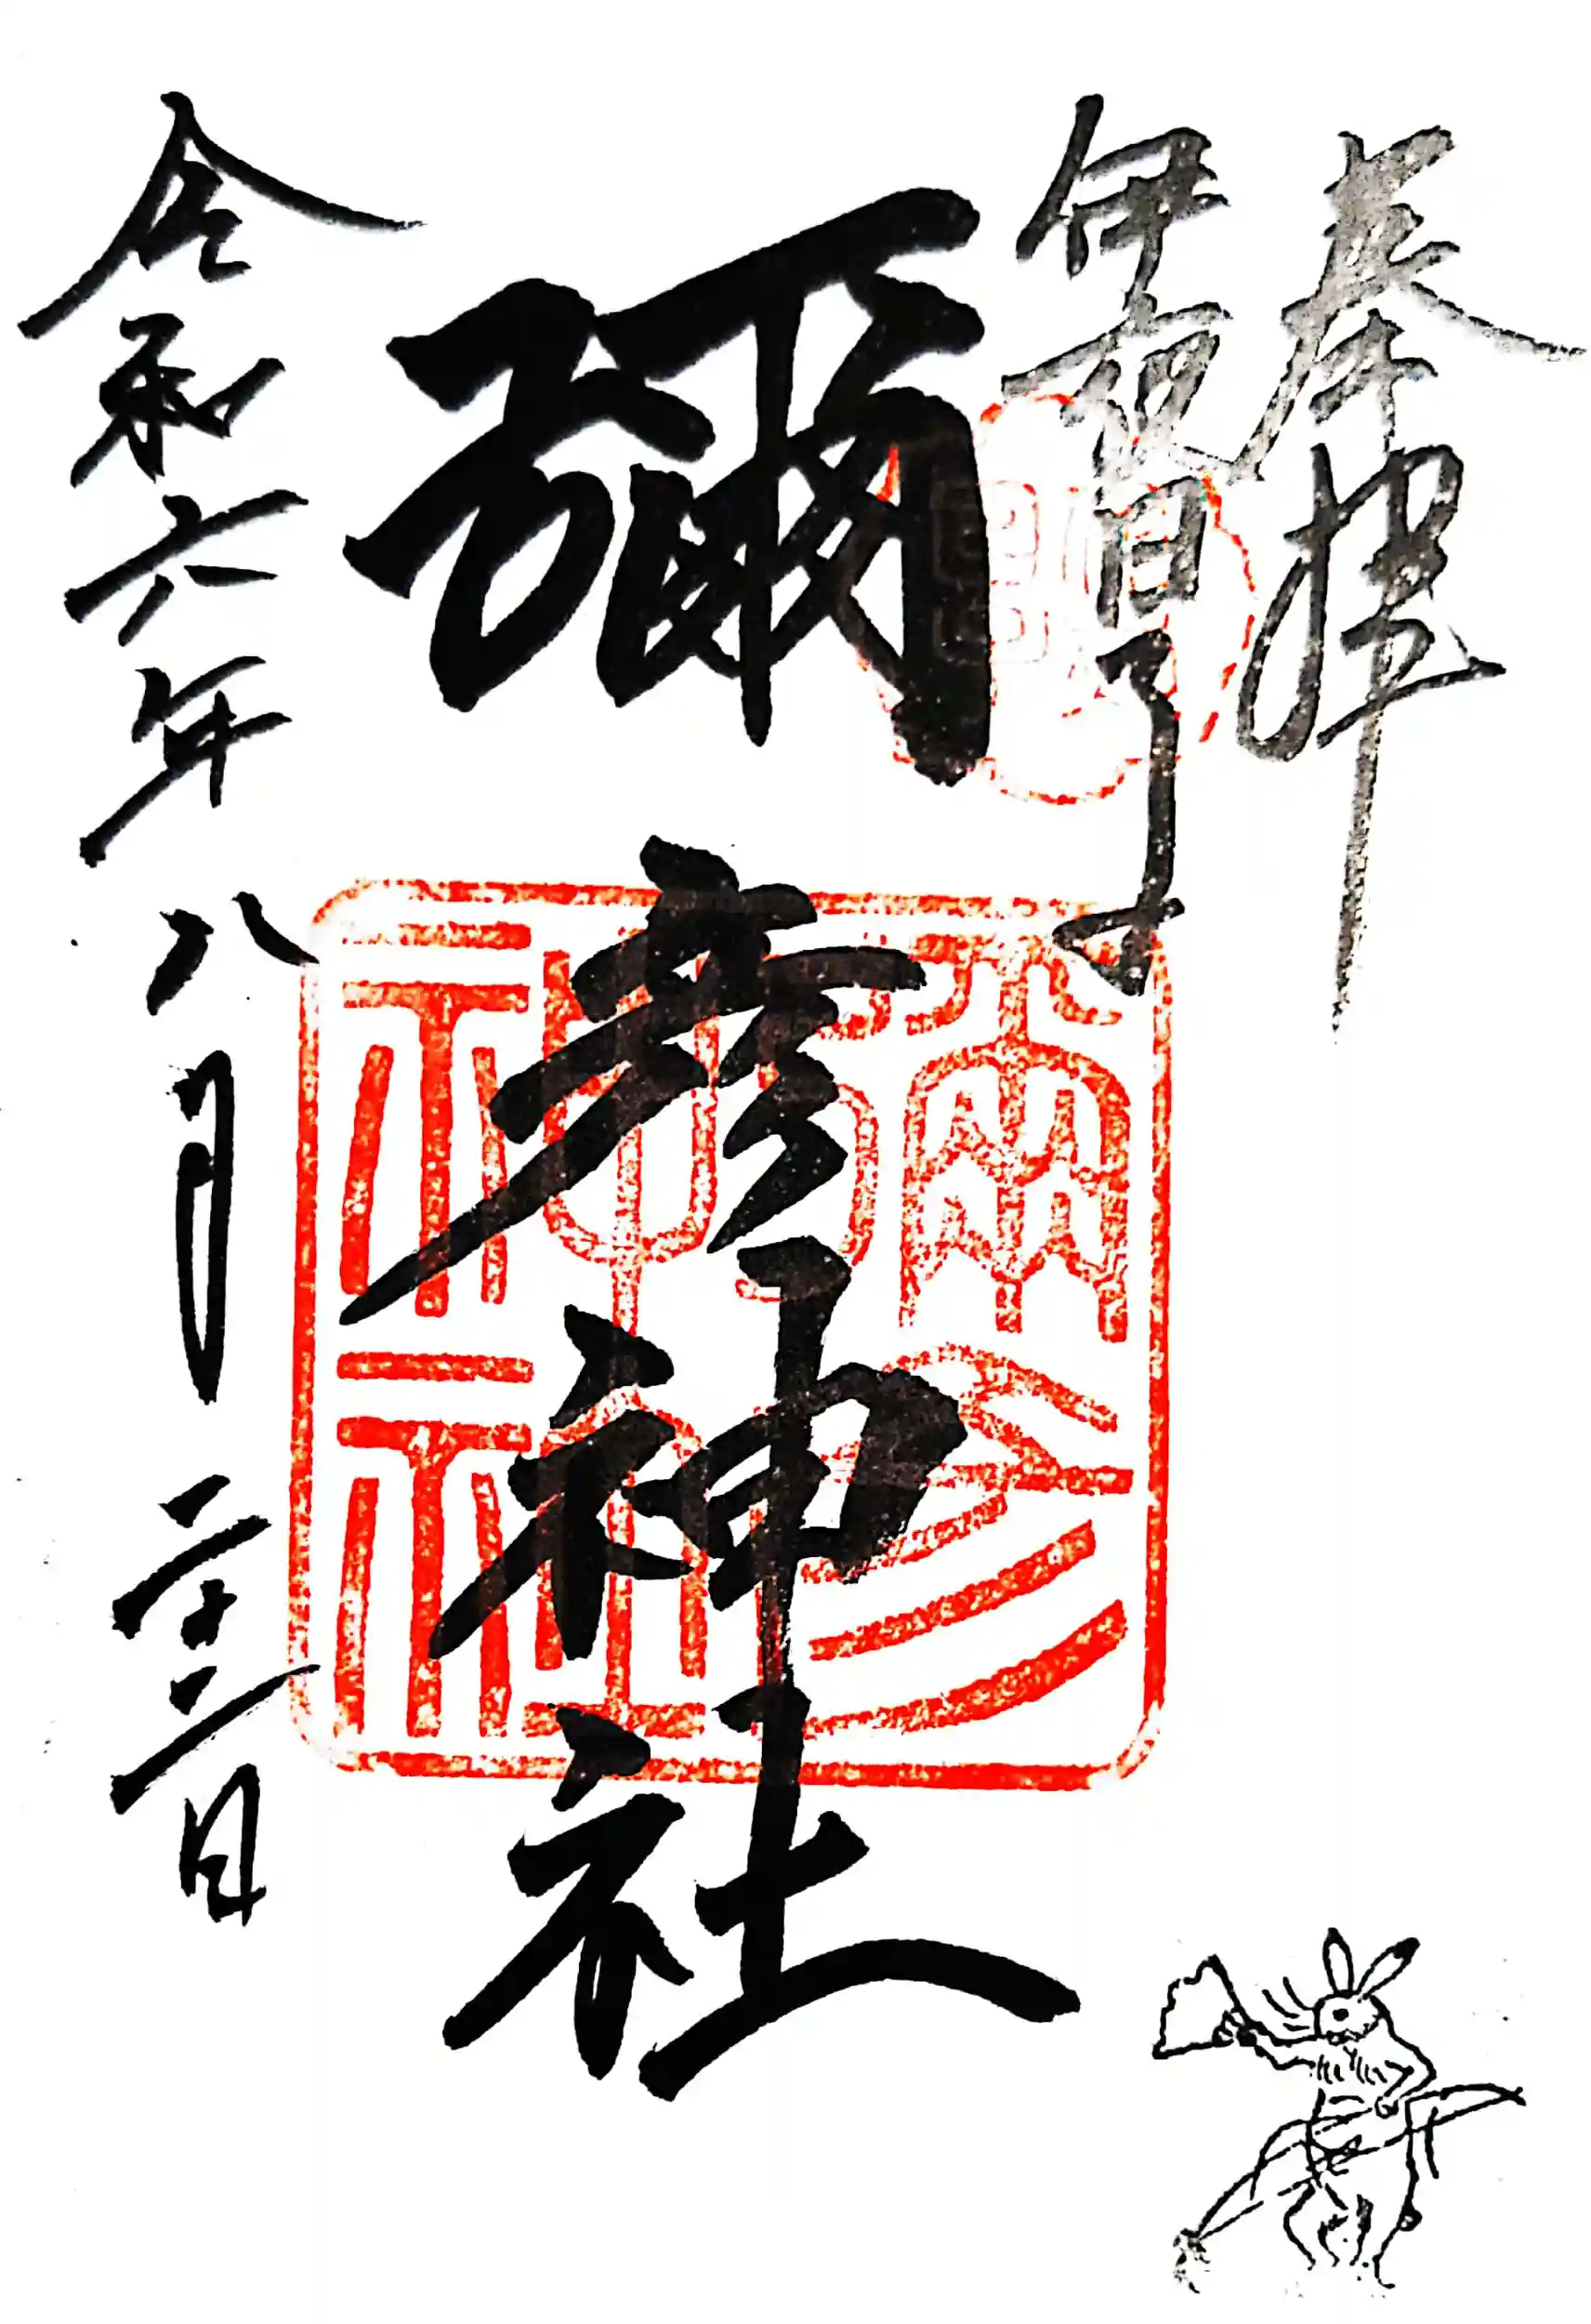 奉拝
伊夜日子
彌彦神社
令和六年八月二十二日
彌彦神社